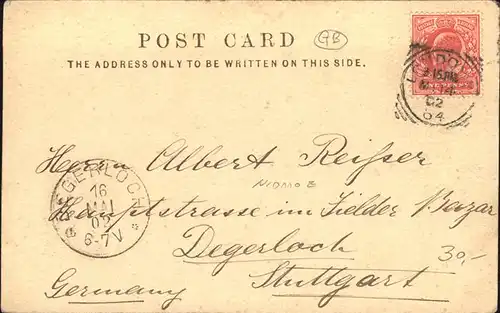 POST CARD GB
THE ADDRESS ONLY TO BE WRITTEN ON THIS SIDE.
LONDON
7.15PM
MY 14
02
64
Herrn Albert Reisser
Hauptstrasse im Fielder Bazar
Degerloch
Stuttgart
Germany
30,-
DEGERLOCH
16
MAI
02
6-7V